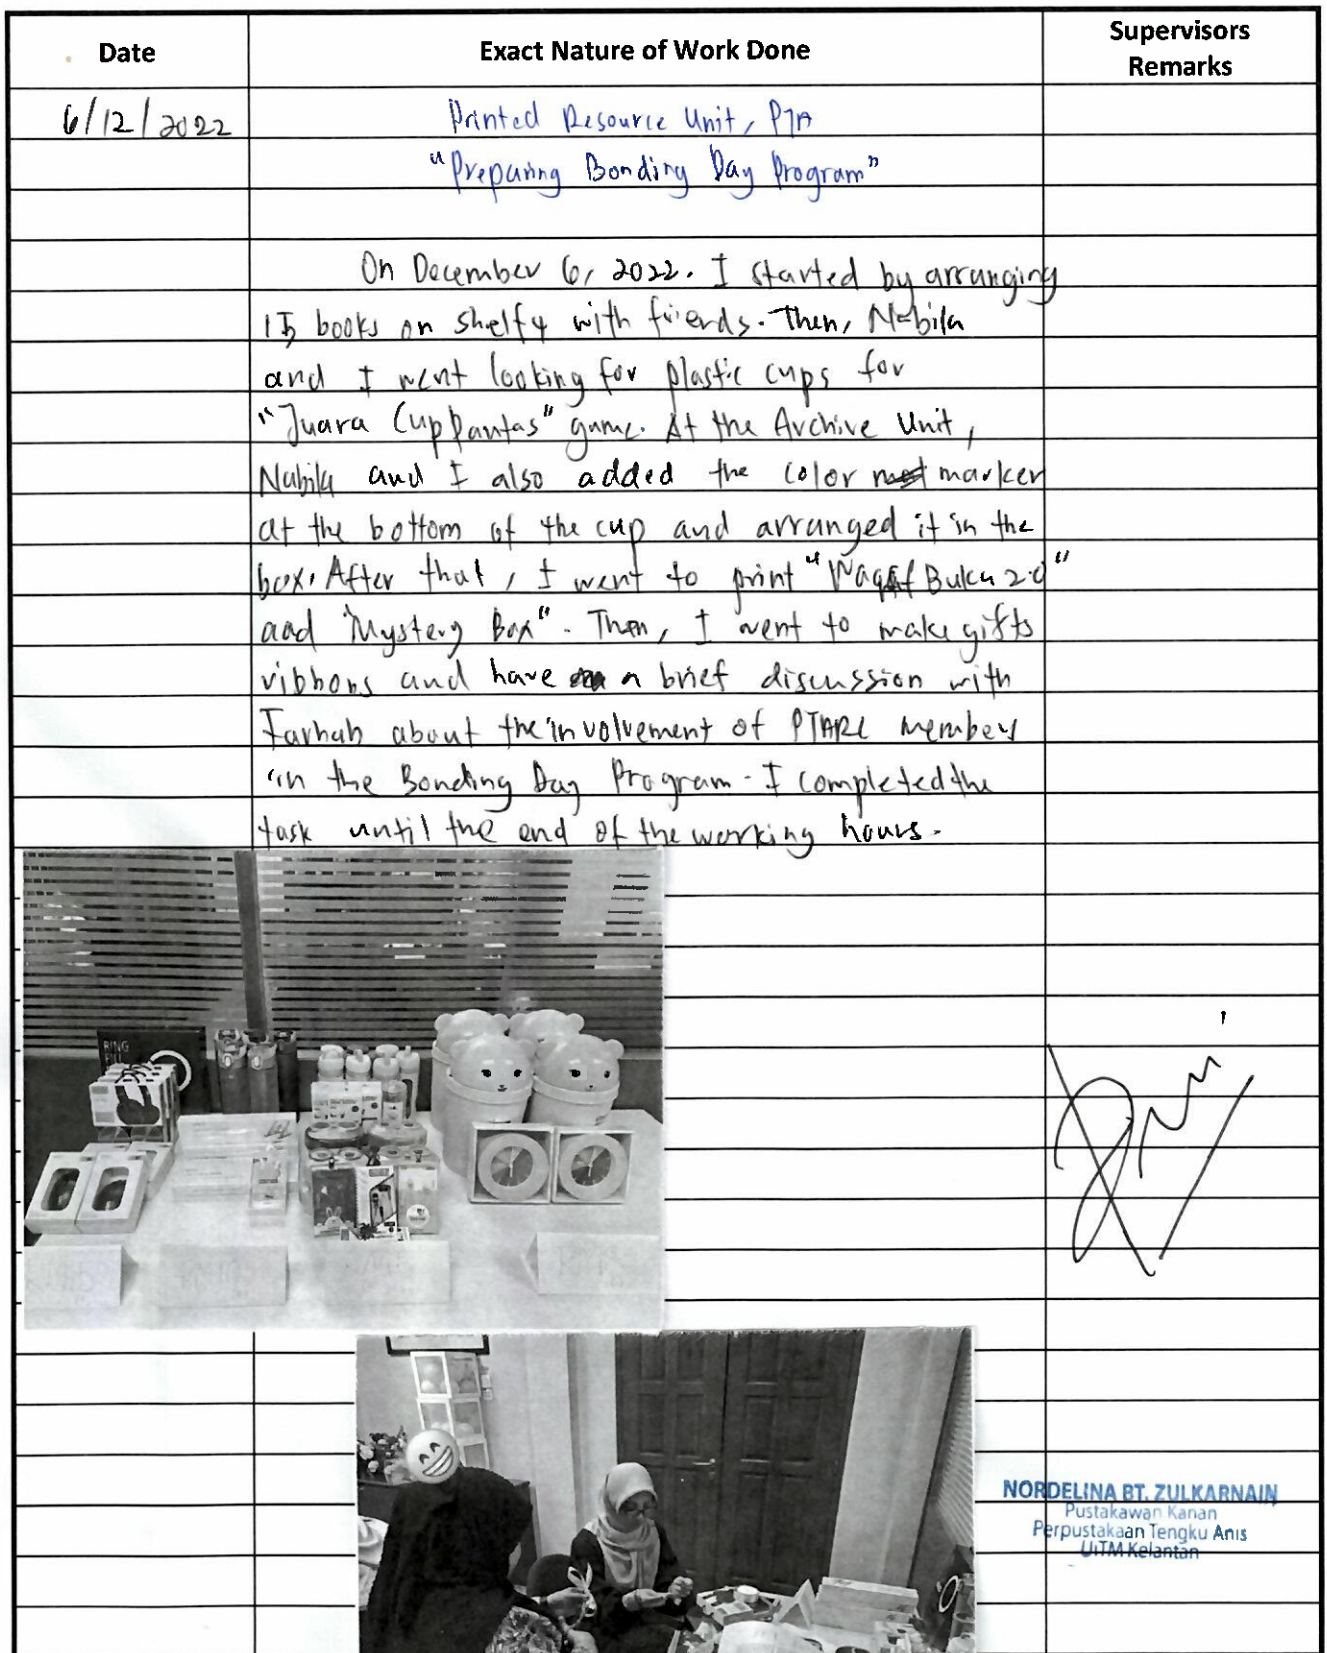 Date
Exact Nature of Work Done
Supervisors
Remarks
6/12/2022
Printed Resource Unit, PTA
"Preparing Bonding Day Program"
On December 6, 2022. I started by arranging
15 books on shelf 4 with friends. Then, Nabila
and I went looking for plastic cups for
"Juara Cup Pantas" game. At the Archive Unit,
Nabila and I also added the color marker
at the bottom of the cup and arranged it in the
box. After that, I went to print "Waqaf Buku 2.0"
and "Mystery Box". Then, I went to make gifts
ribbons and have a brief discussion with
Farhah about the involvement of PTARL members
in the Bonding Day Program. I completed the
task until the end of the working hours.
RING
NORDELINA BT. ZULKARNAIN
Pustakawan Kanan
Perpustakaan Tengku Anis
UiTM Kelantan